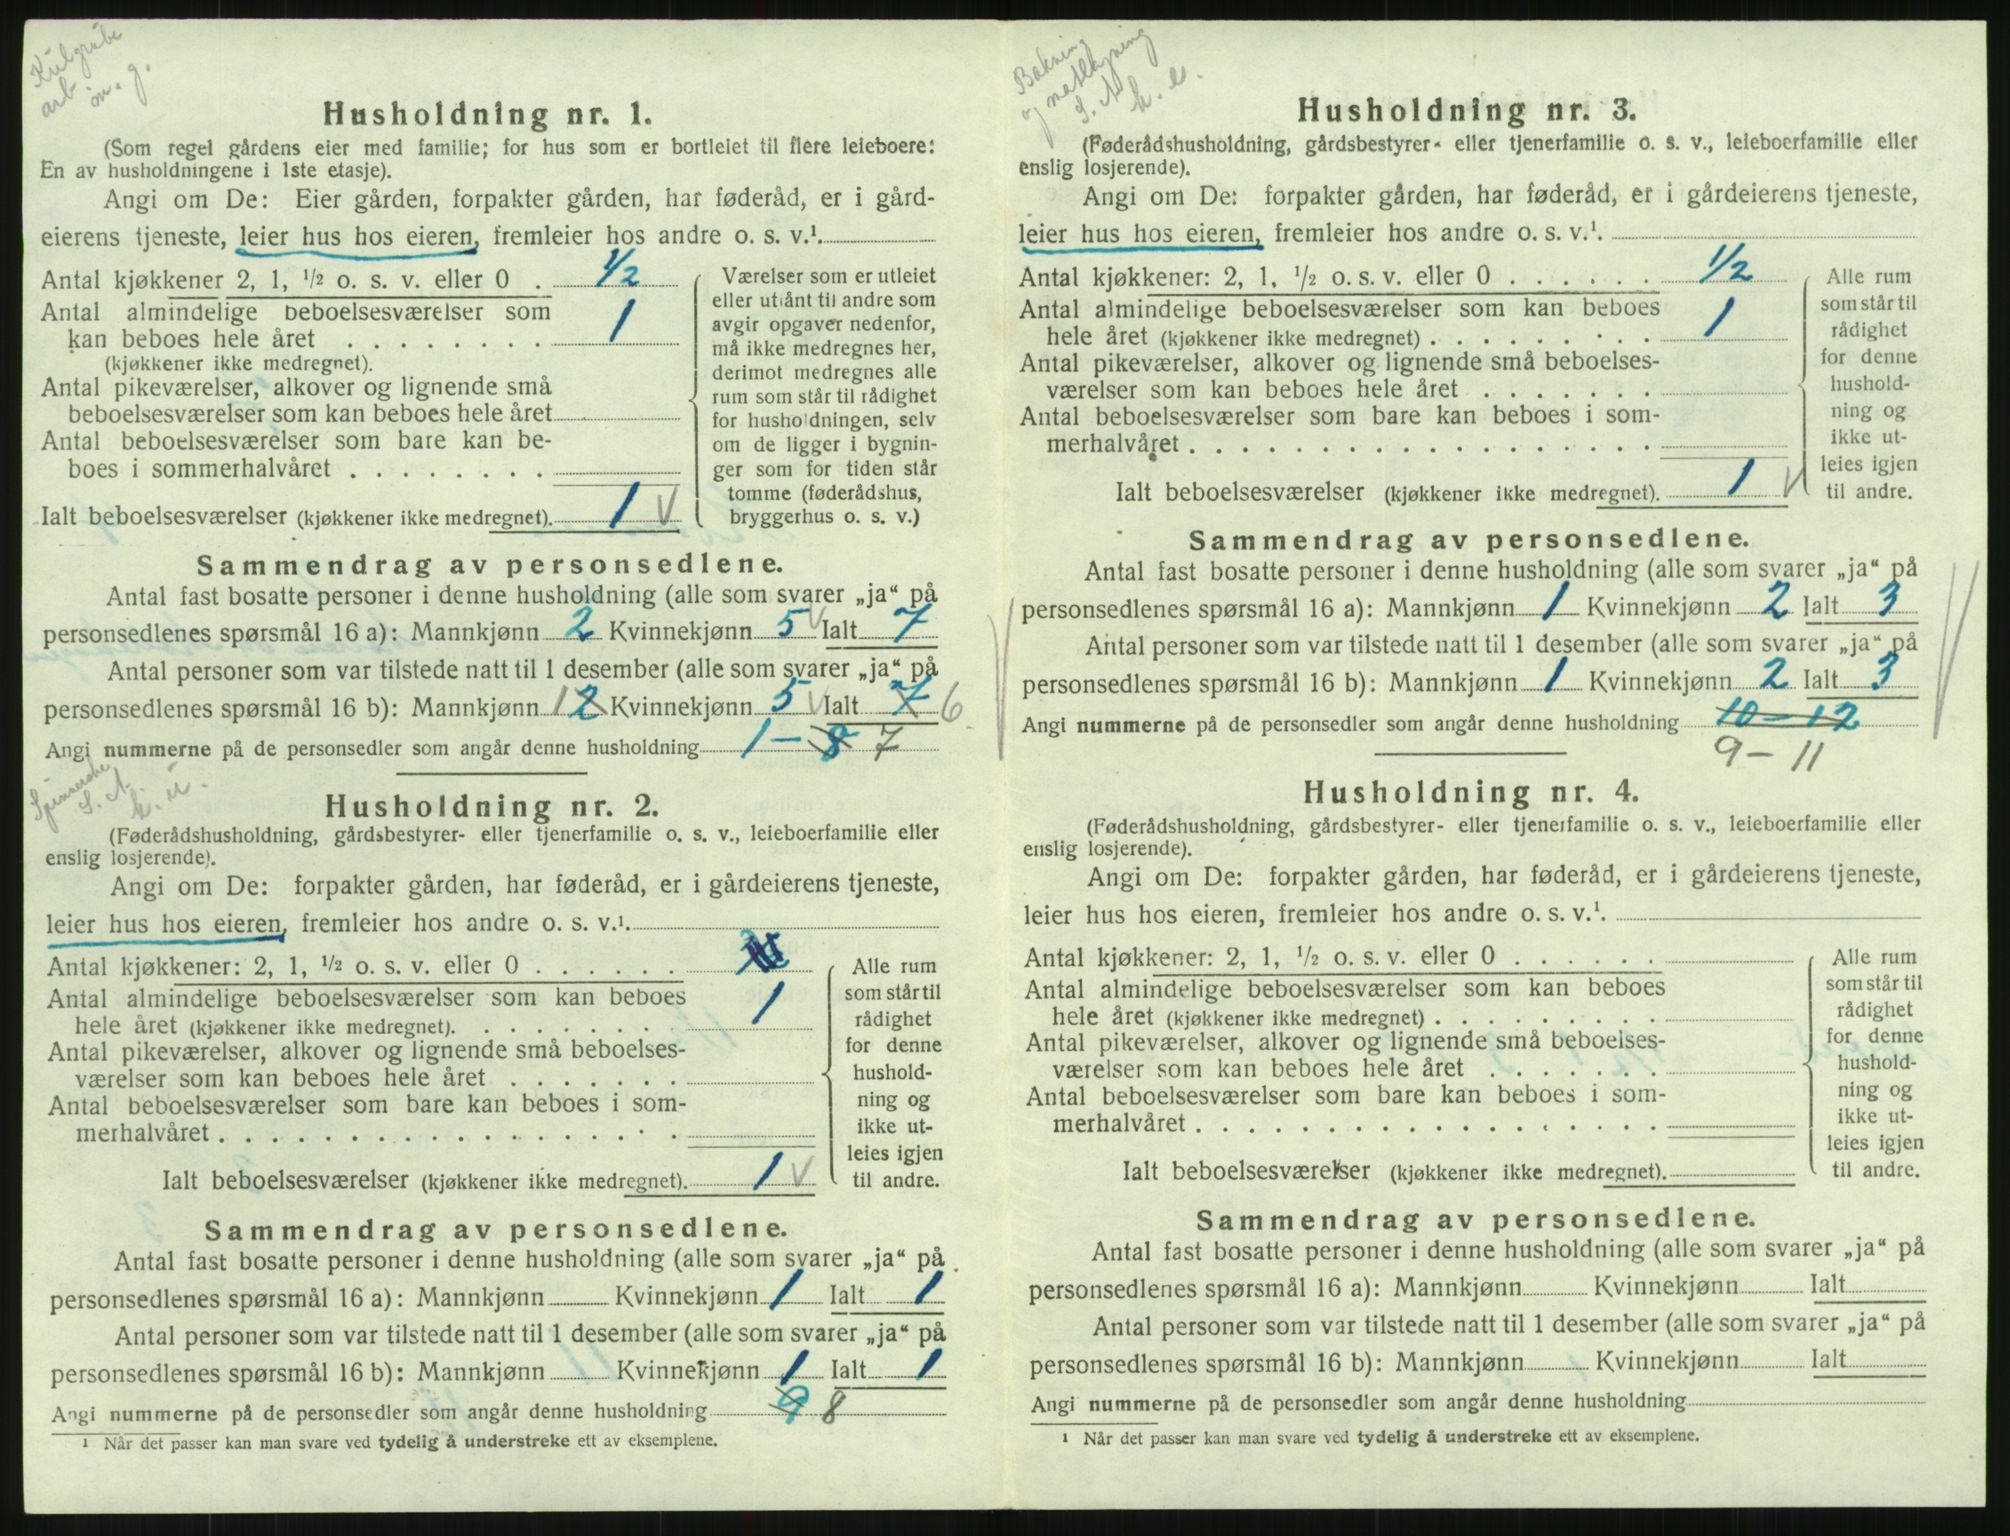 Kulgrube
arb.
m. g.
Husholdning nr. 1.
(Som regel gårdens eier med familie; for hus som er bortleiet til flere leieboere:
En av husholdningene i 1ste etasje).
Angi om De: Eier gården, forpakter gården, har føderåd, er i gård-
eierens tjeneste, leier hus hos eieren, fremleier hos andre o. s. v.¹.
Antal kjøkkener 2, 1, ½ o. s. v. eller 0 . 1/2
Antal almindelige beboelsesværelser som
kan beboes hele året . . . . . . . . 1
(kjøkkener ikke medregnet).
Antal pikeværelser, alkover og lignende små
beboelsesværelser som kan beboes hele året
Antal beboelsesværelser som bare kan be-
boes i sommerhalvåret . . . . . . .
Ialt beboelsesværelser (kjøkkener ikke medregnet). 1 V
Værelser som er utleiet
eller utlånt til andre som
avgir opgaver nedenfor,
må ikke medregnes her,
derimot medregnes alle
rum som står til rådighet
for husholdningen, selv
om de ligger i bygnin-
ger som for tiden står
tomme (føderådshus,
bryggerhus o. s. v.)
Sammendrag av personsedlene.
Antal fast bosatte personer i denne husholdning (alle som svarer „ja“ på
personsedlenes spørsmål 16 a): Mannkjønn 2 Kvinnekjønn 5 V Ialt 7
Antal personer som var tilstede natt til 1 desember (alle som svarer „ja“ på
personsedlenes spørsmål 16 b): Mannkjønn 1 2 Kvinnekjønn 5 V Ialt 7 6
Angi nummerne på de personsedler som angår denne husholdning 1 – 8 7
Spinnerske
S. A.
Husholdning nr. 2.
(Føderådshusholdning, gårdsbestyrer- eller tjenerfamilie o. s. v., leieboerfamilie eller
enslig losjerende).
Angi om De: forpakter gården, har føderåd, er i gårdeierens tjeneste,
leier hus hos eieren, fremleier hos andre o. s. v.¹.
Antal kjøkkener: 2, 1, ½ o. s. v. eller 0 . . . . . .
Antal almindelige beboelsesværelser som kan beboes
hele året (kjøkkener ikke medregnet). . . . . . . . 1
Antal pikeværelser, alkover og lignende små beboelses-
værelser som kan beboes hele året . . . . . . .
Antal beboelsesværelser som bare kan beboes i som-
merhalvåret . . . . . . . . . . . . . . . . . .
Ialt beboelsesværelser (kjøkkener ikke medregnet). 1 V
Alle rum
som står til
rådighet
for denne
hushold-
ning og
ikke ut-
leies igjen
til andre.
Sammendrag av personsedlene.
Antal fast bosatte personer i denne husholdning (alle som svarer „ja“ på
personsedlenes spørsmål 16 a): Mannkjønn Kvinnekjønn 1 Ialt 1
Antal personer som var tilstede natt til 1 desember (alle som svarer „ja“ på
personsedlenes spørsmål 16 b): Mannkjønn Kvinnekjønn 1 Ialt 1
Angi nummerne på de personsedler som angår denne husholdning 9 8
¹ Når det passer kan man svare ved tydelig å understreke ett av eksemplene.
Bakning
og matlagning
S. A.
Husholdning nr. 3.
(Føderådshusholdning, gårdsbestyrer- eller tjenerfamilie o. s. v., leieboerfamilie eller
enslig losjerende).
Angi om De: forpakter gården, har føderåd, er i gårdeierens tjeneste,
leier hus hos eieren, fremleier hos andre o. s. v.¹.
Antal kjøkkener: 2, 1, ½ o. s. v. eller 0 . . . . . . 1/2
Antal almindelige beboelsesværelser som kan beboes
hele året (kjøkkener ikke medregnet) . . . . . . . . 1
Antal pikeværelser, alkover og lignende små beboelses-
værelser som kan beboes hele året . . . . . . .
Antal beboelsesværelser som bare kan beboes i som-
merhalvåret . . . . . . . . . . . . . . . . . .
Ialt beboelsesværelser (kjøkkener ikke medregnet). 1 V
Alle rum
som står til
rådighet
for denne
hushold-
ning og
ikke ut-
leies igjen
til andre.
Sammendrag av personsedlene.
Antal fast bosatte personer i denne husholdning (alle som svarer „ja“ på
personsedlenes spørsmål 16 a): Mannkjønn 1 Kvinnekjønn 2 Ialt 3
Antal personer som var tilstede natt til 1 desember (alle som svarer „ja“ på
personsedlenes spørsmål 16 b): Mannkjønn 1 Kvinnekjønn 2 Ialt 3
Angi nummerne på de personsedler som angår denne husholdning 10 – 12
9 – 11
Husholdning nr. 4.
(Føderådshusholdning, gårdsbestyrer- eller tjenerfamilie o. s. v., leieboerfamilie eller
enslig losjerende).
Angi om De: forpakter gården, har føderåd, er i gårdeierens tjeneste,
leier hus hos eieren, fremleier hos andre o. s. v.¹.
Antal kjøkkener: 2, 1, ½ o. s. v. eller 0 . . . . . .
Antal almindelige beboelsesværelser som kan beboes
hele året (kjøkkener ikke medregnet) . . . . . . . .
Antal pikeværelser, alkover og lignende små beboelses-
værelser som kan beboes hele året . . . . . . .
Antal beboelsesværelser som bare kan beboes i som-
merhalvåret . . . . . . . . . . . . . . . . . .
Ialt beboelsesværelser (kjøkkener ikke medregnet).
Alle rum
som står til
rådighet
for denne
hushold-
ning og
ikke ut-
leies igjen
til andre.
Sammendrag av personsedlene.
Antal fast bosatte personer i denne husholdning (alle som svarer „ja“ på
personsedlenes spørsmål 16 a): Mannkjønn Kvinnekjønn Ialt
Antal personer som var tilstede natt til 1 desember (alle som svarer „ja“ på
personsedlenes spørsmål 16 b): Mannkjønn Kvinnekjønn Ialt
Angi nummerne på de personsedler som angår denne husholdning
¹ Når det passer kan man svare ved tydelig å understreke ett av eksemplene.